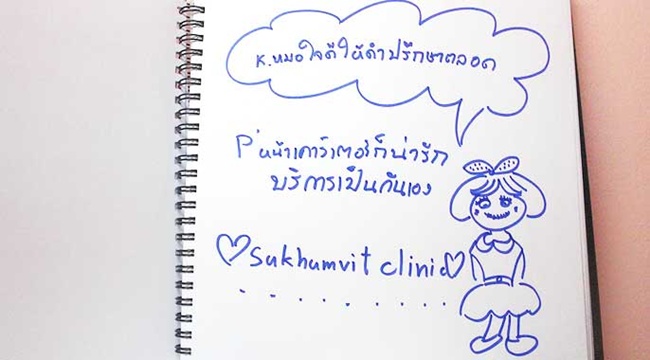 K.หมอใจดีให้คำปรึกษาตลอด
P'หน้าเคาร์เตอร์ก็น่ารัก
บริการเป็นกันเอง
♡Sukhumvit clinic♡